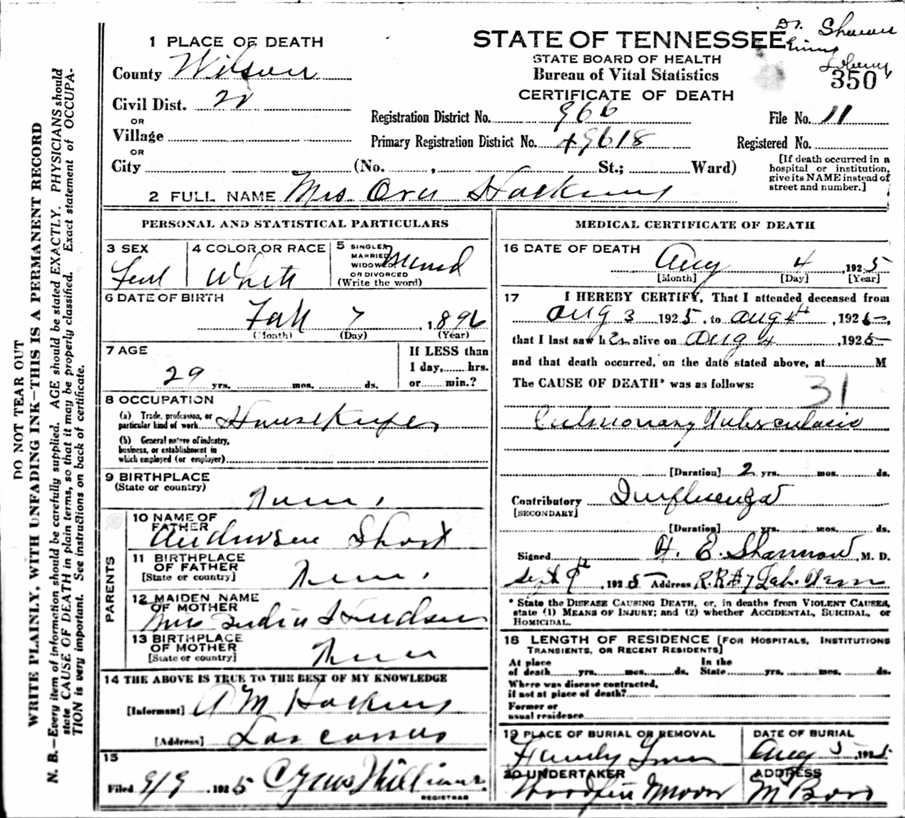 Dr. Shannon
350
STATE OF TENNESSEE
STATE BOARD OF HEALTH
Bureau of Vital Statistics
CERTIFICATE OF DEATH
1 PLACE OF DEATH
County Wilson
Civil Dist.
OR
Village
OR
City (No. , St.; Ward)
Registration District No. 966 File No. 11
Primary Registration District No. 49618 Registered No.
[If death occurred in a hospital or institution, give its NAME instead of street and number.]
2 FULL NAME Mrs Ora Haskins
PERSONAL AND STATISTICAL PARTICULARS
3 SEX
4 COLOR OR RACE White
5 SINGLE, MARRIED, WIDOWED, OR DIVORCED (Write the word)
6 DATE OF BIRTH
7 1896
(Month) (Day) (Year)
7 AGE
29 yrs. mos. ds.
If LESS than 1 day, hrs. or min.?
8 OCCUPATION
(a) Trade, profession, or particular kind of work Housekeeper
(b) General nature of industry, business, or establishment in which employed (or employer)
9 BIRTHPLACE
(State or country) Tenn.
PARENTS
10 NAME OF FATHER Anderson Short
11 BIRTHPLACE OF FATHER
[State or country] Tenn.
12 MAIDEN NAME OF MOTHER
Hudson
13 BIRTHPLACE OF MOTHER
[State or country] Tenn
14 THE ABOVE IS TRUE TO THE BEST OF MY KNOWLEDGE
[Informant] A M Haskins
[Address] Lascassas
15
Filed 9/9 1925 Cyrus Williams
REGISTRAR
MEDICAL CERTIFICATE OF DEATH
16 DATE OF DEATH
Aug 4 1925
[Month] (Day) [Year]
17 I HEREBY CERTIFY, That I attended deceased from
Aug 3 1925, to Aug 4th, 1925,
that I last saw her alive on Aug 4 , 1925
and that death occurred, on the date stated above, at M
The CAUSE OF DEATH* was as follows:
31
Pulmonary Tuberculosis
[Duration] 2 yrs. mos. ds.
Contributory Influenza
[SECONDARY]
[Duration] yrs. mos. ds.
Signed H. E. Shannon, M. D.
Sept 9th 1925 Address R.R. #7 Leb. Tenn
* State the DISEASE CAUSING DEATH, or, in deaths from VIOLENT CAUSES, state (1) MEANS OF INJURY; and (2) whether ACCIDENTAL, SUICIDAL, OR HOMICIDAL.
18 LENGTH OF RESIDENCE [FOR HOSPITALS, INSTITUTIONS TRANSIENTS, OR RECENT RESIDENTS]
At place of death yrs. mos. ds. In the State yrs. mos. ds.
Where was disease contracted, if not at place of death?
Former or usual residence
19 PLACE OF BURIAL OR REMOVAL
Family
DATE OF BURIAL
Aug 5 1925
20 UNDERTAKER
Woodfin Moore
ADDRESS
M Boro
DO NOT TEAR OUT
WRITE PLAINLY, WITH UNFADING INK—THIS IS A PERMANENT RECORD
N. B.—Every item of information should be carefully supplied. AGE should be stated EXACTLY. PHYSICIANS should
state CAUSE OF DEATH in plain terms, so that it may be properly classified. Exact statement of OCCUPA-
TION is very important. See instructions on back of certificate.